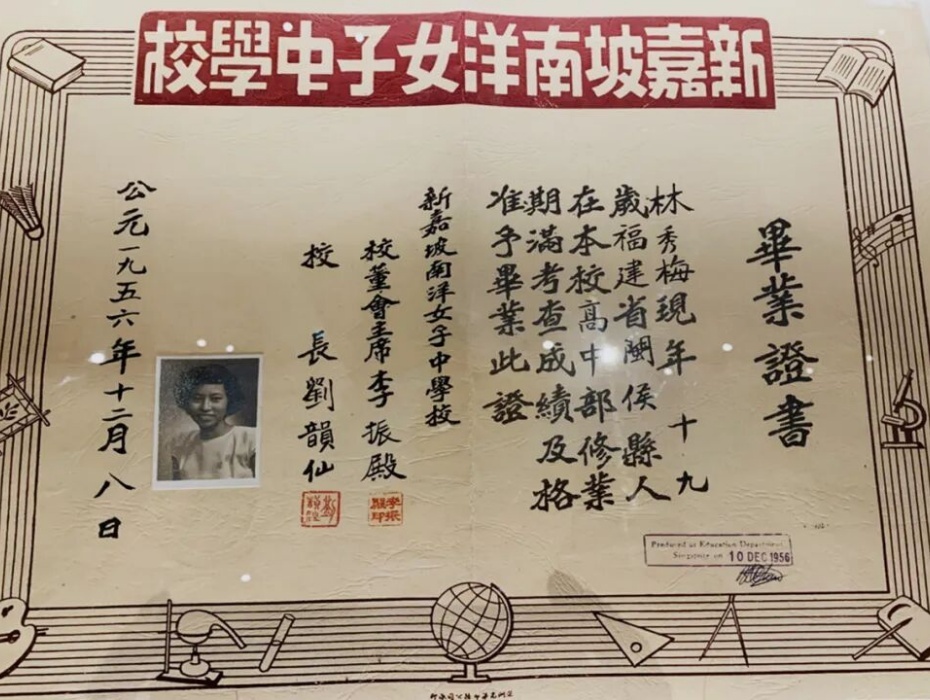 新嘉坡南洋女子中學校
畢業證書
林秀梅現年十九
歲福建省閩侯縣人
在本校高中部修業
期滿考查成績及格
准予畢業此證
新嘉坡南洋女子中學校
校董會主席李振殿
校長劉韻仙
公元一九五六年十二月八日
Produced at Education Department,
Singapore on 10 DEC 1956